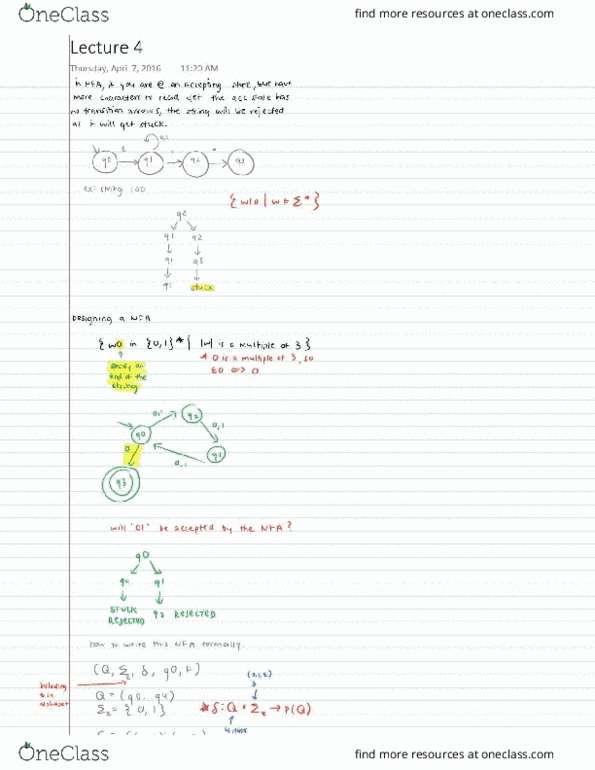 OneClass
find more resources at oneclass.com
Lecture 4
Thursday, April 7, 2016 11:20 AM
in NFA, if you are @ an accepting state, but have
more characters to read yet the acc state has
no transition arrows, the string will be rejected
as it will get stuck.
0,1
q0 q1 q2 q3
ex) string 100
{ w10 | w ∈ Σ* }
q0
q1 q2
q1 q3
q1 stuck
Designing a NFA
{ w0 in {0,1}* | |w| is a multiple of 3 }
* 0 is a multiple of 3, so
ε0 <=> 0
end of the
string
0,1 q2 0,1
q0
0 q1
0,1
q3
will '01' be accepted by the NFA?
q0
q1
STUCK q2 REJECTED
REJECTED
how to write this NFA formally.
(Q, Σ, δ, q0, F)
including
ε in
alphabet
Q = (q0.. q4)
Σε = { 0, 1 }
* δ: Q × Σε → P(Q)
OneClass
find more resources at oneclass.com